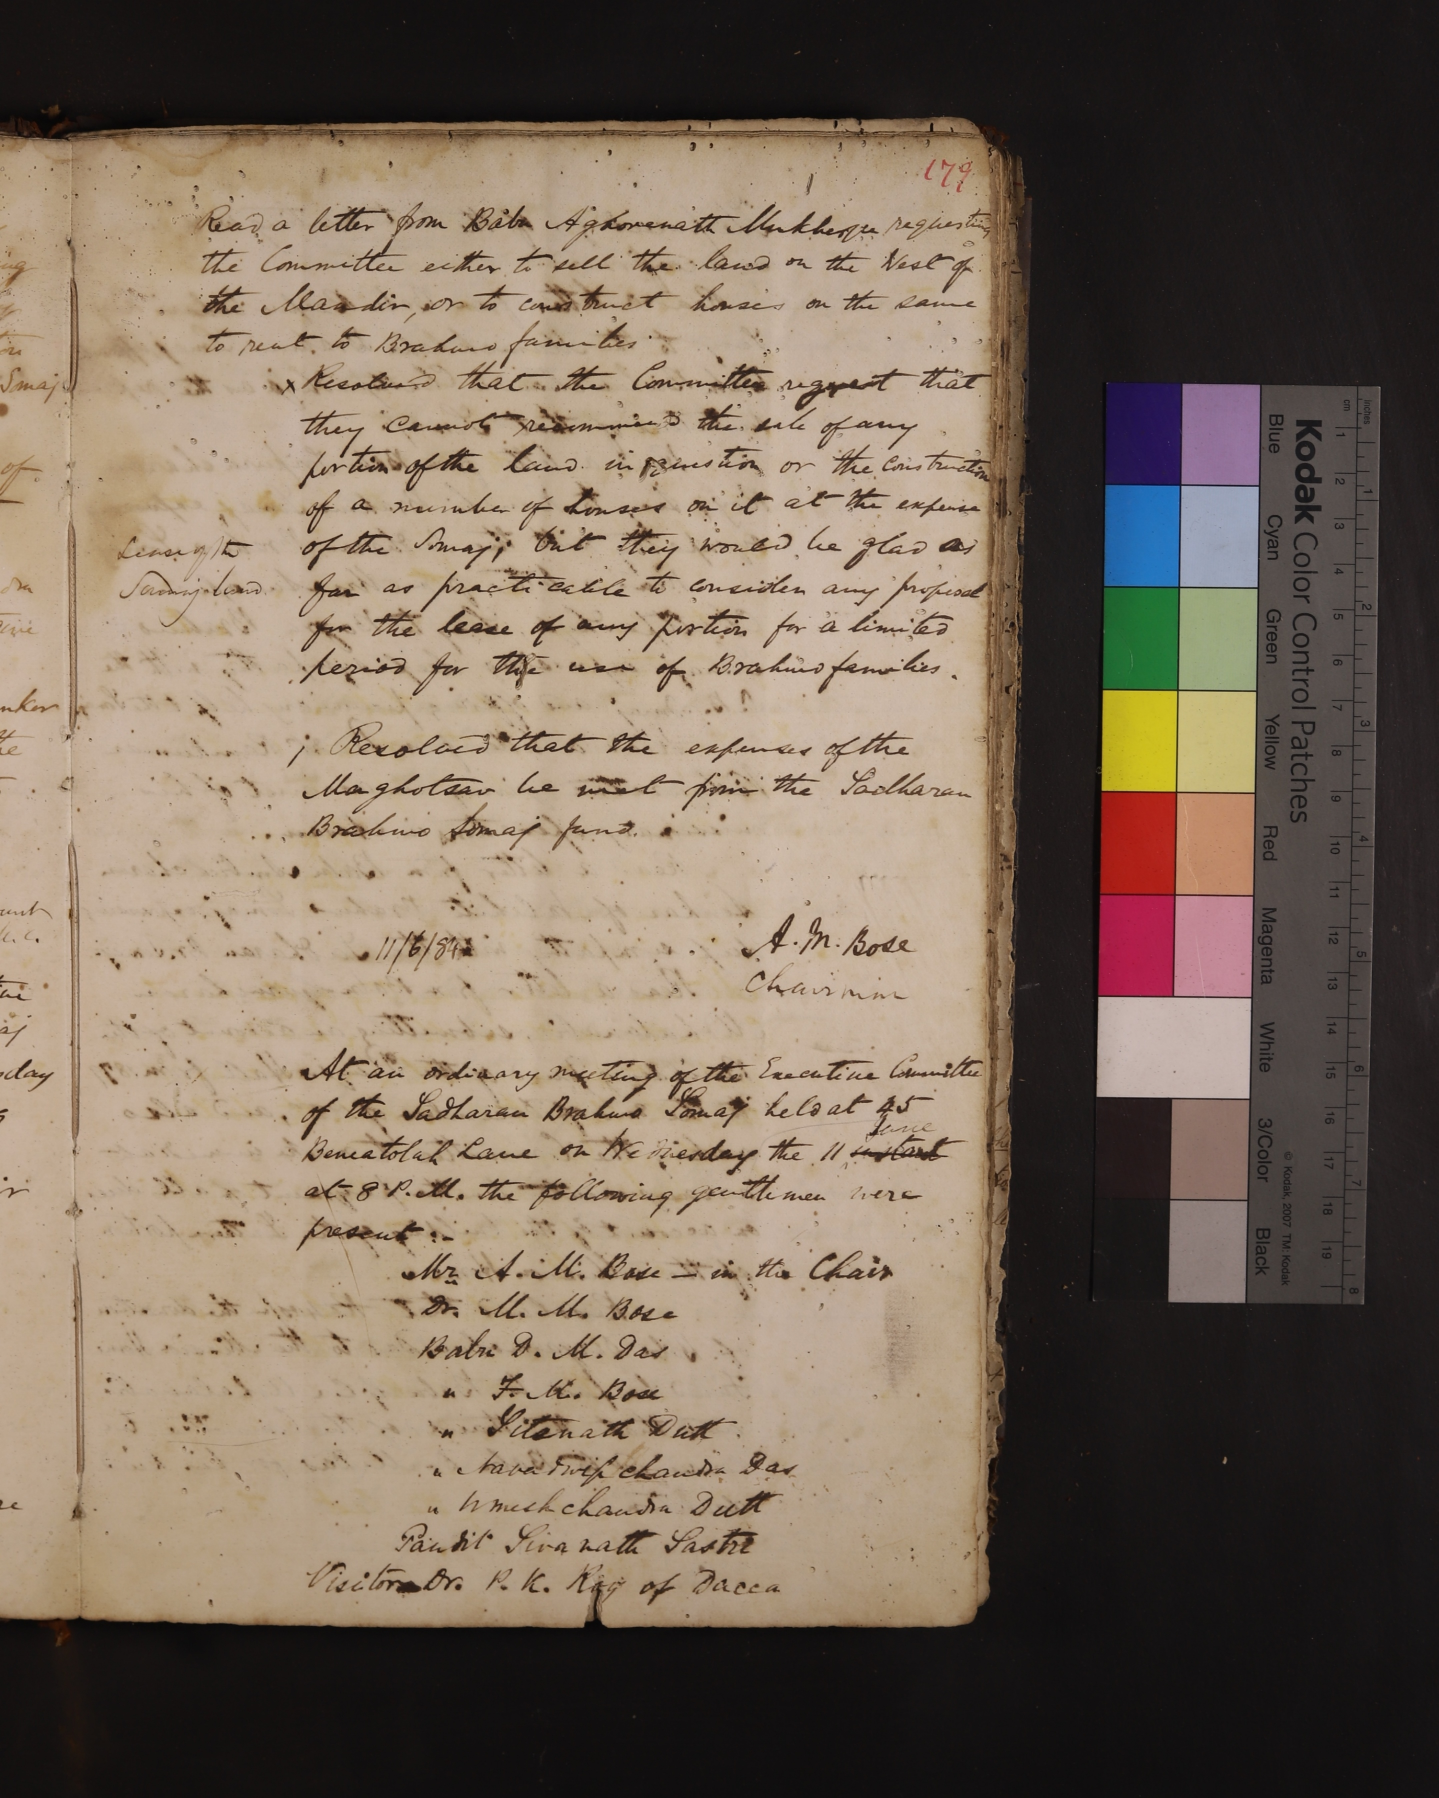 179
Read a letter from Babu Aghorenath Mukherjee requesting
the Committee either to sell the land on the West of
the Mandir, or to construct houses on the same
to rent to Brahmo families
x Resolved that the Committee regret that
they cannot recommend the sale of any
portion of the land in question or the construction
of a number of houses on it at the expense
of the Somaj; but they would be glad as
far as practicable to consider any proposal
for the lease of any portion for a limited
period for the use of Brahmo families.
Lease of the
Somaj land
; Resolved that the expenses of the
Maghotsav be met from the Sadharan
Brahmo Somaj fund.
11/6/84
A. M. Bose
Chairman
At an ordinary meeting of the Executive Committee
of the Sadharan Brahmo Somaj held at 45
Beneatolah Lane on Wednesday the 11 instant June
at 8 P.M. the following gentlemen were
present :-
Mr. A. M. Bose – in the Chair
Dr. M. M. Bose
Babu D. M. Das
" F. M. Bose
" Sitanath Dutt
" Navadwip chandra Das
" Umesh chandra Dutt
Pandit Sivanath Sastri
Visitor Dr. P. K. Ray of Dacca
Smaj
of
nker
the
sday
Kodak Color Control Patches
Blue Cyan Green Yellow Red Magenta White 3/Color Black
© Kodak, 2007 TM: Kodak
Inches 1 2 3 4 5 6 7 8
cm 1 2 3 4 5 6 7 8 9 10 11 12 13 14 15 16 17 18 19